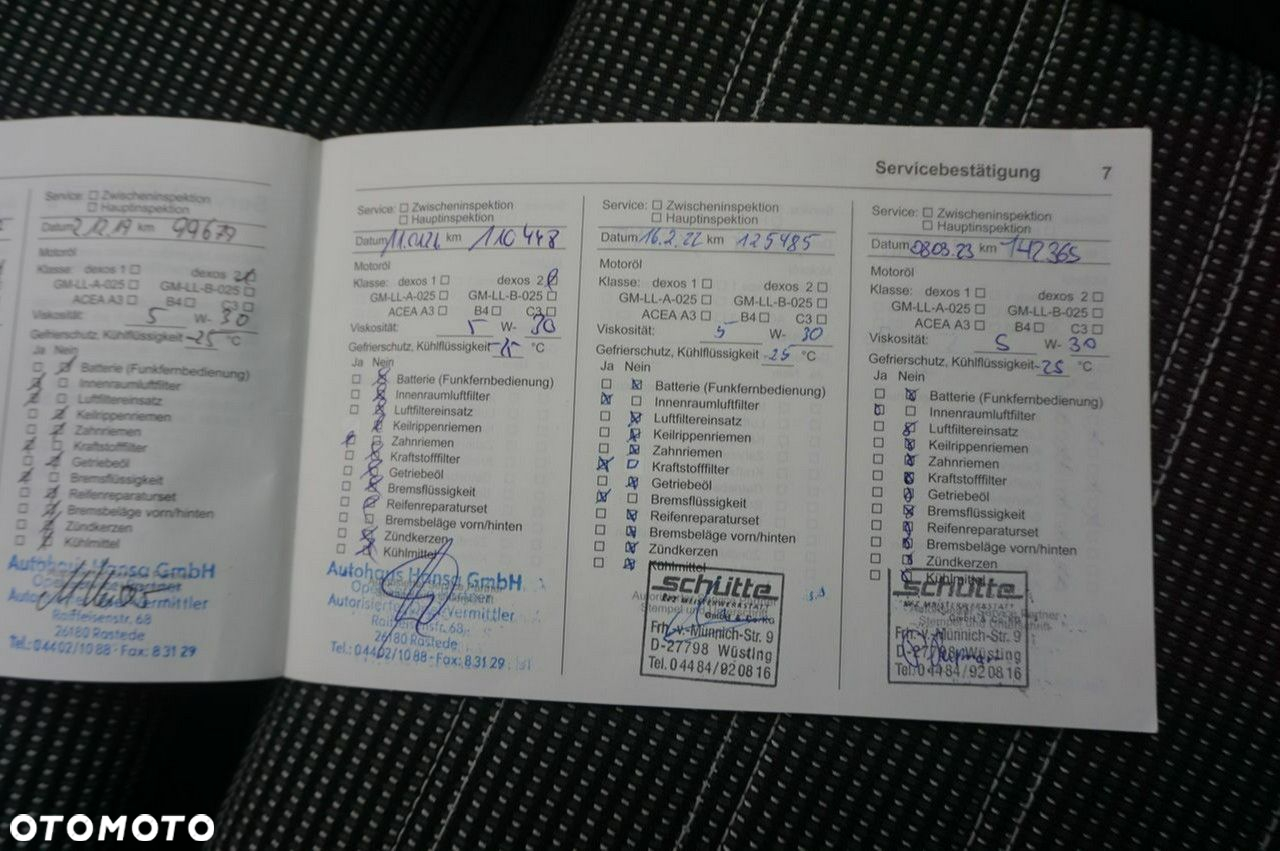 Servicebestätigung 7
Service: Zwischeninspektion
Hauptinspektion
Datum 2.12.19 km 99679
Motoröl
Klasse: dexos 1 dexos 2
GM-LL-A-025 GM-LL-B-025
ACEA A3 B4 C3
Viskosität: 5 W- 30
Gefrierschutz, Kühlflüssigkeit -25 °C
Ja Nein
Batterie (Funkfernbedienung)
Innenraumluftfilter
Luftfiltereinsatz
Keilrippenriemen
Zahnriemen
Kraftstofffilter
Getriebeöl
Bremsflüssigkeit
Reifenreparaturset
Bremsbeläge vorn/hinten
Zündkerzen
Kühlmittel
Autohaus Hansa GmbH
Autorisierter Opel Vermittler
Raiffeisenstr. 68
26180 Rastede
Tel.: 04402/1088 - Fax: 83129
Service: Zwischeninspektion
Hauptinspektion
Datum km 110448
Motoröl
Klasse: dexos 1 dexos 2
GM-LL-A-025 GM-LL-B-025
ACEA A3 B4 C3
Viskosität: 5 W- 30
Gefrierschutz, Kühlflüssigkeit °C
Ja Nein
Batterie (Funkfernbedienung)
Innenraumluftfilter
Luftfiltereinsatz
Keilrippenriemen
Zahnriemen
Kraftstofffilter
Getriebeöl
Bremsflüssigkeit
Reifenreparaturset
Bremsbeläge vorn/hinten
Zündkerzen
Kühlmittel
Autohaus Hansa GmbH
Autorisierter Opel Vermittler
Raiffeisenstr. 68
26180 Rastede
Tel.: 04402/1088 - Fax: 83129
Service: Zwischeninspektion
Hauptinspektion
Datum 16.2.22 km 125485
Motoröl
Klasse: dexos 1 dexos 2
GM-LL-A-025 GM-LL-B-025
ACEA A3 B4 C3
Viskosität: 5 W- 30
Gefrierschutz, Kühlflüssigkeit -25 °C
Ja Nein
Batterie (Funkfernbedienung)
Innenraumluftfilter
Luftfiltereinsatz
Keilrippenriemen
Zahnriemen
Kraftstofffilter
Getriebeöl
Bremsflüssigkeit
Reifenreparaturset
Bremsbeläge vorn/hinten
Zündkerzen
Kühlmittel
schütte
KFZ MEISTERWERKSTATT
GmbH & Co. KG
Frh.-v.-Münnich-Str. 9
D-27798 Wüsting
Tel. 04484/920816
Service: Zwischeninspektion
Hauptinspektion
Datum 08.03.23 km 142365
Motoröl
Klasse: dexos 1 dexos 2
GM-LL-A-025 GM-LL-B-025
ACEA A3 B4 C3
Viskosität: 5 W- 30
Gefrierschutz, Kühlflüssigkeit -25 °C
Ja Nein
Batterie (Funkfernbedienung)
Innenraumluftfilter
Luftfiltereinsatz
Keilrippenriemen
Zahnriemen
Kraftstofffilter
Getriebeöl
Bremsflüssigkeit
Reifenreparaturset
Bremsbeläge vorn/hinten
Zündkerzen
Kühlmittel
schütte
KFZ MEISTERWERKSTATT
GmbH & Co. KG
Frh.-v.-Münnich-Str. 9
D-27798 Wüsting
Tel. 04484/920816
OTOMOTO